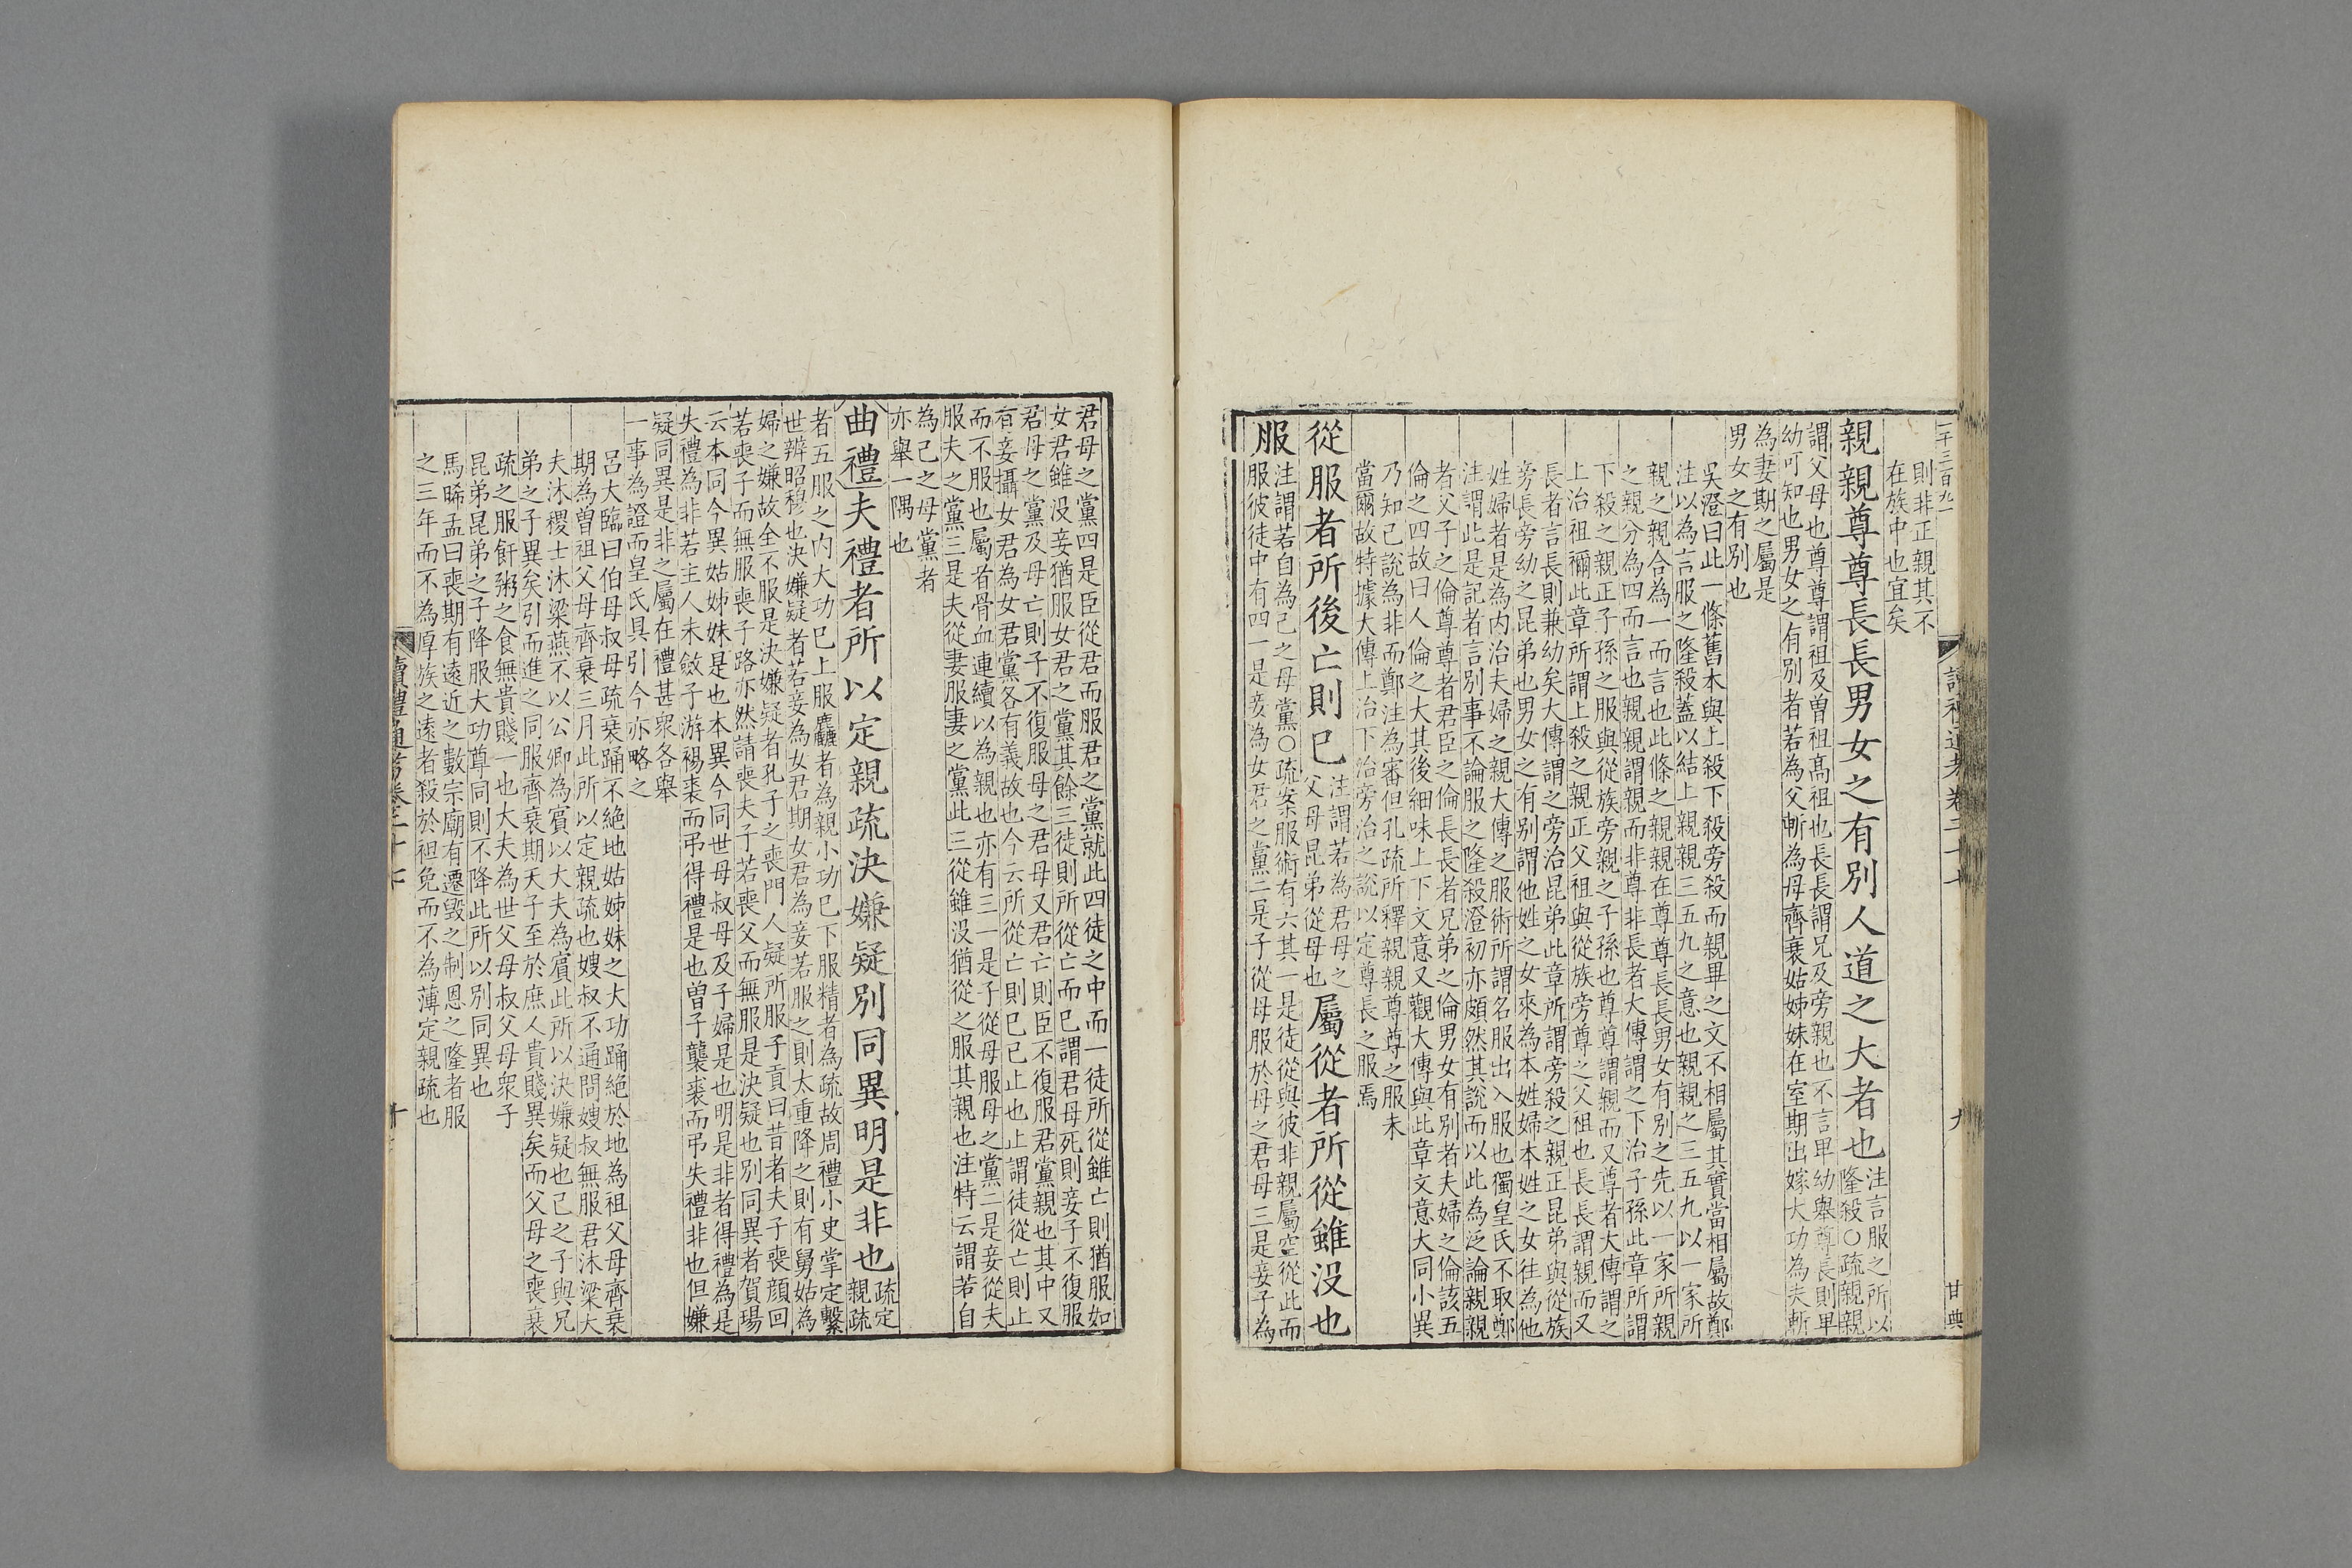 則非正親其不
在族中也宜矣
親親尊尊長長男女之有別人道之大者也
注言服之所以
隆殺○疏親親
謂父母也尊尊謂祖及曾祖髙祖也長長謂兄及旁親也不言卑幼舉尊長則卑
幼可知也男女之有別者若為父斬為母齊衰姑姊妹在室期出嫁大功為夫斬
為妻期之屬是
男女之有別也
吳澄曰此一條舊本與上殺下殺旁殺而親畢之文不相屬其實當相屬故鄭
注以為言服之隆殺蓋以結上親親三五九之意也親親之三五九以一家所
親之親合為一而言也此條之親親在尊尊長長男女有別之先以一家所親
之親分為四而言也親親謂親而非尊非長者大傳謂之下治子孫此章所謂
下殺之親正子孫之服與從族旁親之子孫也尊尊謂親而又尊者大傳謂之
上治祖禰此章所謂上殺之親正父祖與從族旁尊之父祖也長長謂親而又
長者言長則兼幼矣大傳謂之旁治昆弟此章所謂旁殺之親正昆弟與從族
旁長旁幼之昆弟也男女之有別謂他姓之女來為本姓婦本姓之女往為他
姓婦者是為内治夫婦之親大傳之服術所謂名服出入服也獨皇氏不取鄭
注謂此是記者言別事不論服之隆殺澄初亦頗然其說而以此為泛論親親
者父子之倫尊尊者君臣之倫長長者兄弟之倫男女有別者夫婦之倫該五
倫之四故曰人倫之大其後細味上下文意又觀大傳與此章文意大同小異
乃知己說為非而鄭注為審但孔疏所釋親親尊尊之服未
當爾故特據大傳上治下治旁治之說以定尊長之服焉
從服者所後亡則已
注謂若為君母之
父母昆弟從母也
屬從者所從雖沒也
服
注謂若自為己之母黨○疏案服術有六其一是徒從與彼非親屬空從此而
服彼徒中有四一是妾為女君之黨二是子從母服於母之君母三是妾子為
君母之黨四是臣從君而服君之黨就此四徒之中而一徒所從雖亡則猶服如
女君雖没妾猶服女君之黨其餘三徒則所從亡而已謂君母死則妾子不復服
君母之黨及母亡則子不復服母之君母又君亡則臣不復服君黨親也其中又
有妾攝女君為女君黨各有義故也今云所從亡則已已止也止謂徒從亡則止
而不服也屬者骨血連續以為親也亦有三一是子從母服母之黨二是妾從夫
服夫之黨三是夫從妻服妻之黨此三從雖没猶從之服其親也注特云謂若自
為己之母黨者
亦舉一隅也
曲禮夫禮者所以定親疏決嫌疑別同異明是非也
疏定
親疏
者五服之内大功已上服麤者為親小功已下服精者為疏故周禮小史掌定繫
世辨昭穆也決嫌疑者若妾為女君期女君為妾若服之則太重降之則有舅姑為
婦之嫌故全不服是決嫌疑者孔子之喪門人疑所服子貢曰昔者夫子喪顔回
若喪子而無服喪子路亦然請喪夫子若喪父而無服是決疑也別同異者賀瑒
云本同今異姑姊妹是也本異今同世母叔母及子婦是也明是非者得禮為是
失禮為非若主人未斂子游裼裘而弔得禮是也曾子襲裘而弔失禮非也但嫌
疑同異是非之屬在禮甚衆各舉
一事為證而皇氏具引今亦略之
呂大臨曰伯母叔母疏衰踊不絶地姑姊妹之大功踊絶於地為祖父母齊衰
期為曾祖父母齊衰三月此所以定親疏也嫂叔不通問嫂叔無服君沐梁大
夫沐稷士沐梁燕不以公卿為賓以大夫為賓此所以決嫌疑也己之子與兄
弟之子異矣引而進之同服齊衰期天子至於庶人貴賤異矣而父母之喪衰
疏之服飦粥之食無貴賤一也大夫為世父母叔父母衆子
昆弟昆弟之子降服大功尊同則不降此所以別同異也
馬晞孟曰喪期有遠近之數宗廟有遷毀之制恩之隆者服
之三年而不為厚族之遠者殺於袒免而不為薄定親疏也
讀禮通考卷三十七